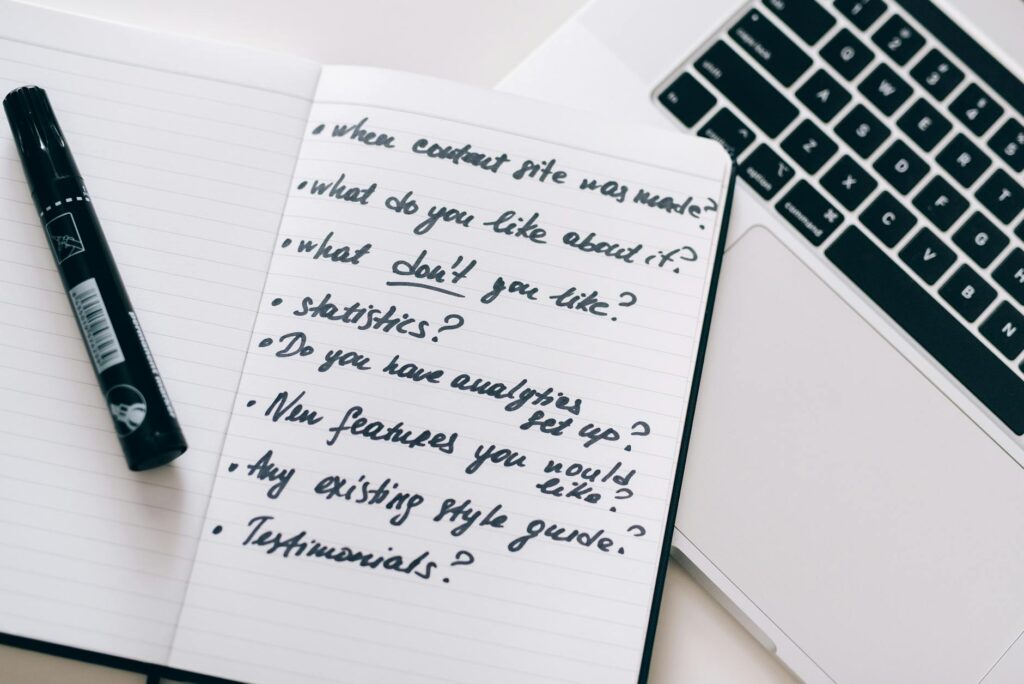 • when content site was made?
• what do you like about it?
• what don't you like?
• statistics?
• Do you have analytics
set up?
• New features you would
like?
• Any existing style guide?
• Testimonials?
1 2 3 4 5
Q W E R T
caps lock A S D F G H
shift Z X C V B N
fn option command ⌘